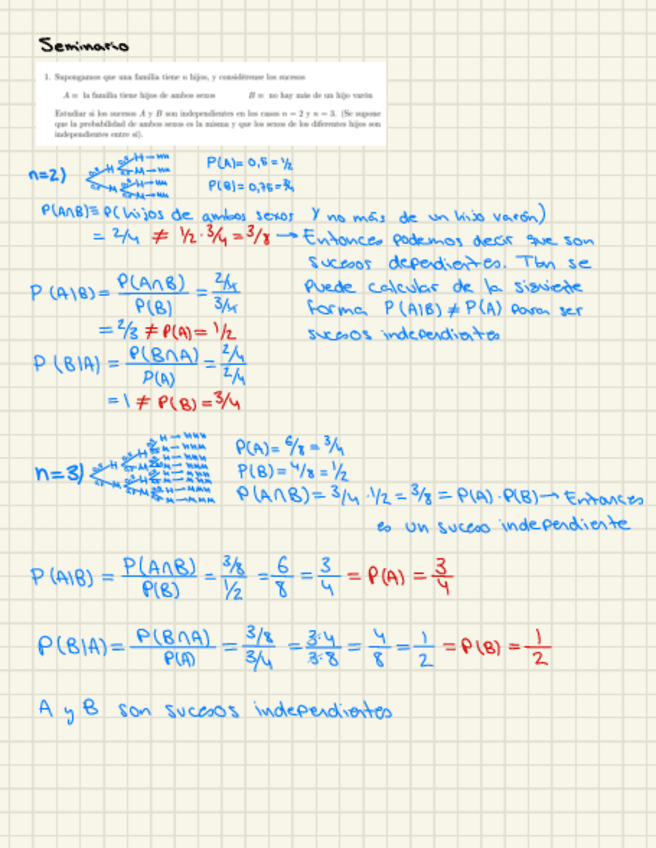 Seminario
1. Supongamos que una familia tiene n hijos, y considérense los sucesos
A = la familia tiene hijos de ambos sexos B = no hay más de un hijo varón
Estudiar si los sucesos A y B son independientes en los casos n = 2 y n = 3. (Se supone
que la probabilidad de ambos sexos es la misma y que los sexos de los diferentes hijos son
independientes entre sí).
n=2)
P(A)= 0,5 = 1/2
P(B)= 0,75 = 3/4
P(A∩B)= P(hijos de ambos sexos y no más de un hijo varón)
= 2/4 ≠ 1/2 · 3/4 = 3/8 → Entonces podemos decir que son
sucesos dependientes. Tbn se
puede calcular de la siguiente
forma P(A|B) ≠ P(A) para ser
sucesos independientes
P(A|B) = P(A∩B)/P(B) = 2/4 / 3/4
= 2/3 ≠ P(A) = 1/2
P(B|A) = P(B∩A)/P(A) = 2/4 / 2/4
= 1 ≠ P(B) = 3/4
n=3)
P(A)= 6/8 = 3/4
P(B)= 4/8 = 1/2
P(A∩B)= 3/4 · 1/2 = 3/8 = P(A)·P(B) → Entonces
es un suceso independiente
P(A|B) = P(A∩B)/P(B) = 3/8 / 1/2 = 6/8 = 3/4 = P(A) = 3/4
P(B|A) = P(B∩A)/P(A) = 3/8 / 3/4 = 3·4/3·8 = 4/8 = 1/2 = P(B) = 1/2
A y B son sucesos independientes